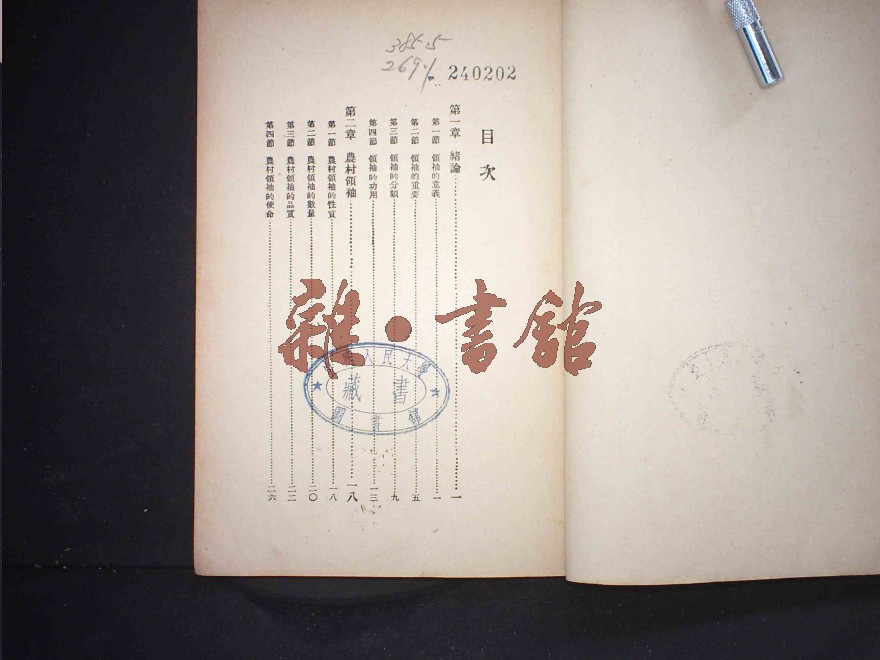 385.5
269
240202
目次
第一章 緒論 一
第一節 領袖的意義 一
第二節 領袖的重要 五
第三節 領袖的分類 九
第四節 領袖的功用 一三
第二章 農村領袖 一八
第一節 農村領袖的性質 一八
第二節 農村領袖的數量 二〇
第三節 農村領袖的品質 二二
第四節 農村領袖的使命 二六
雜·書館
人民大學
藏書
圖書館